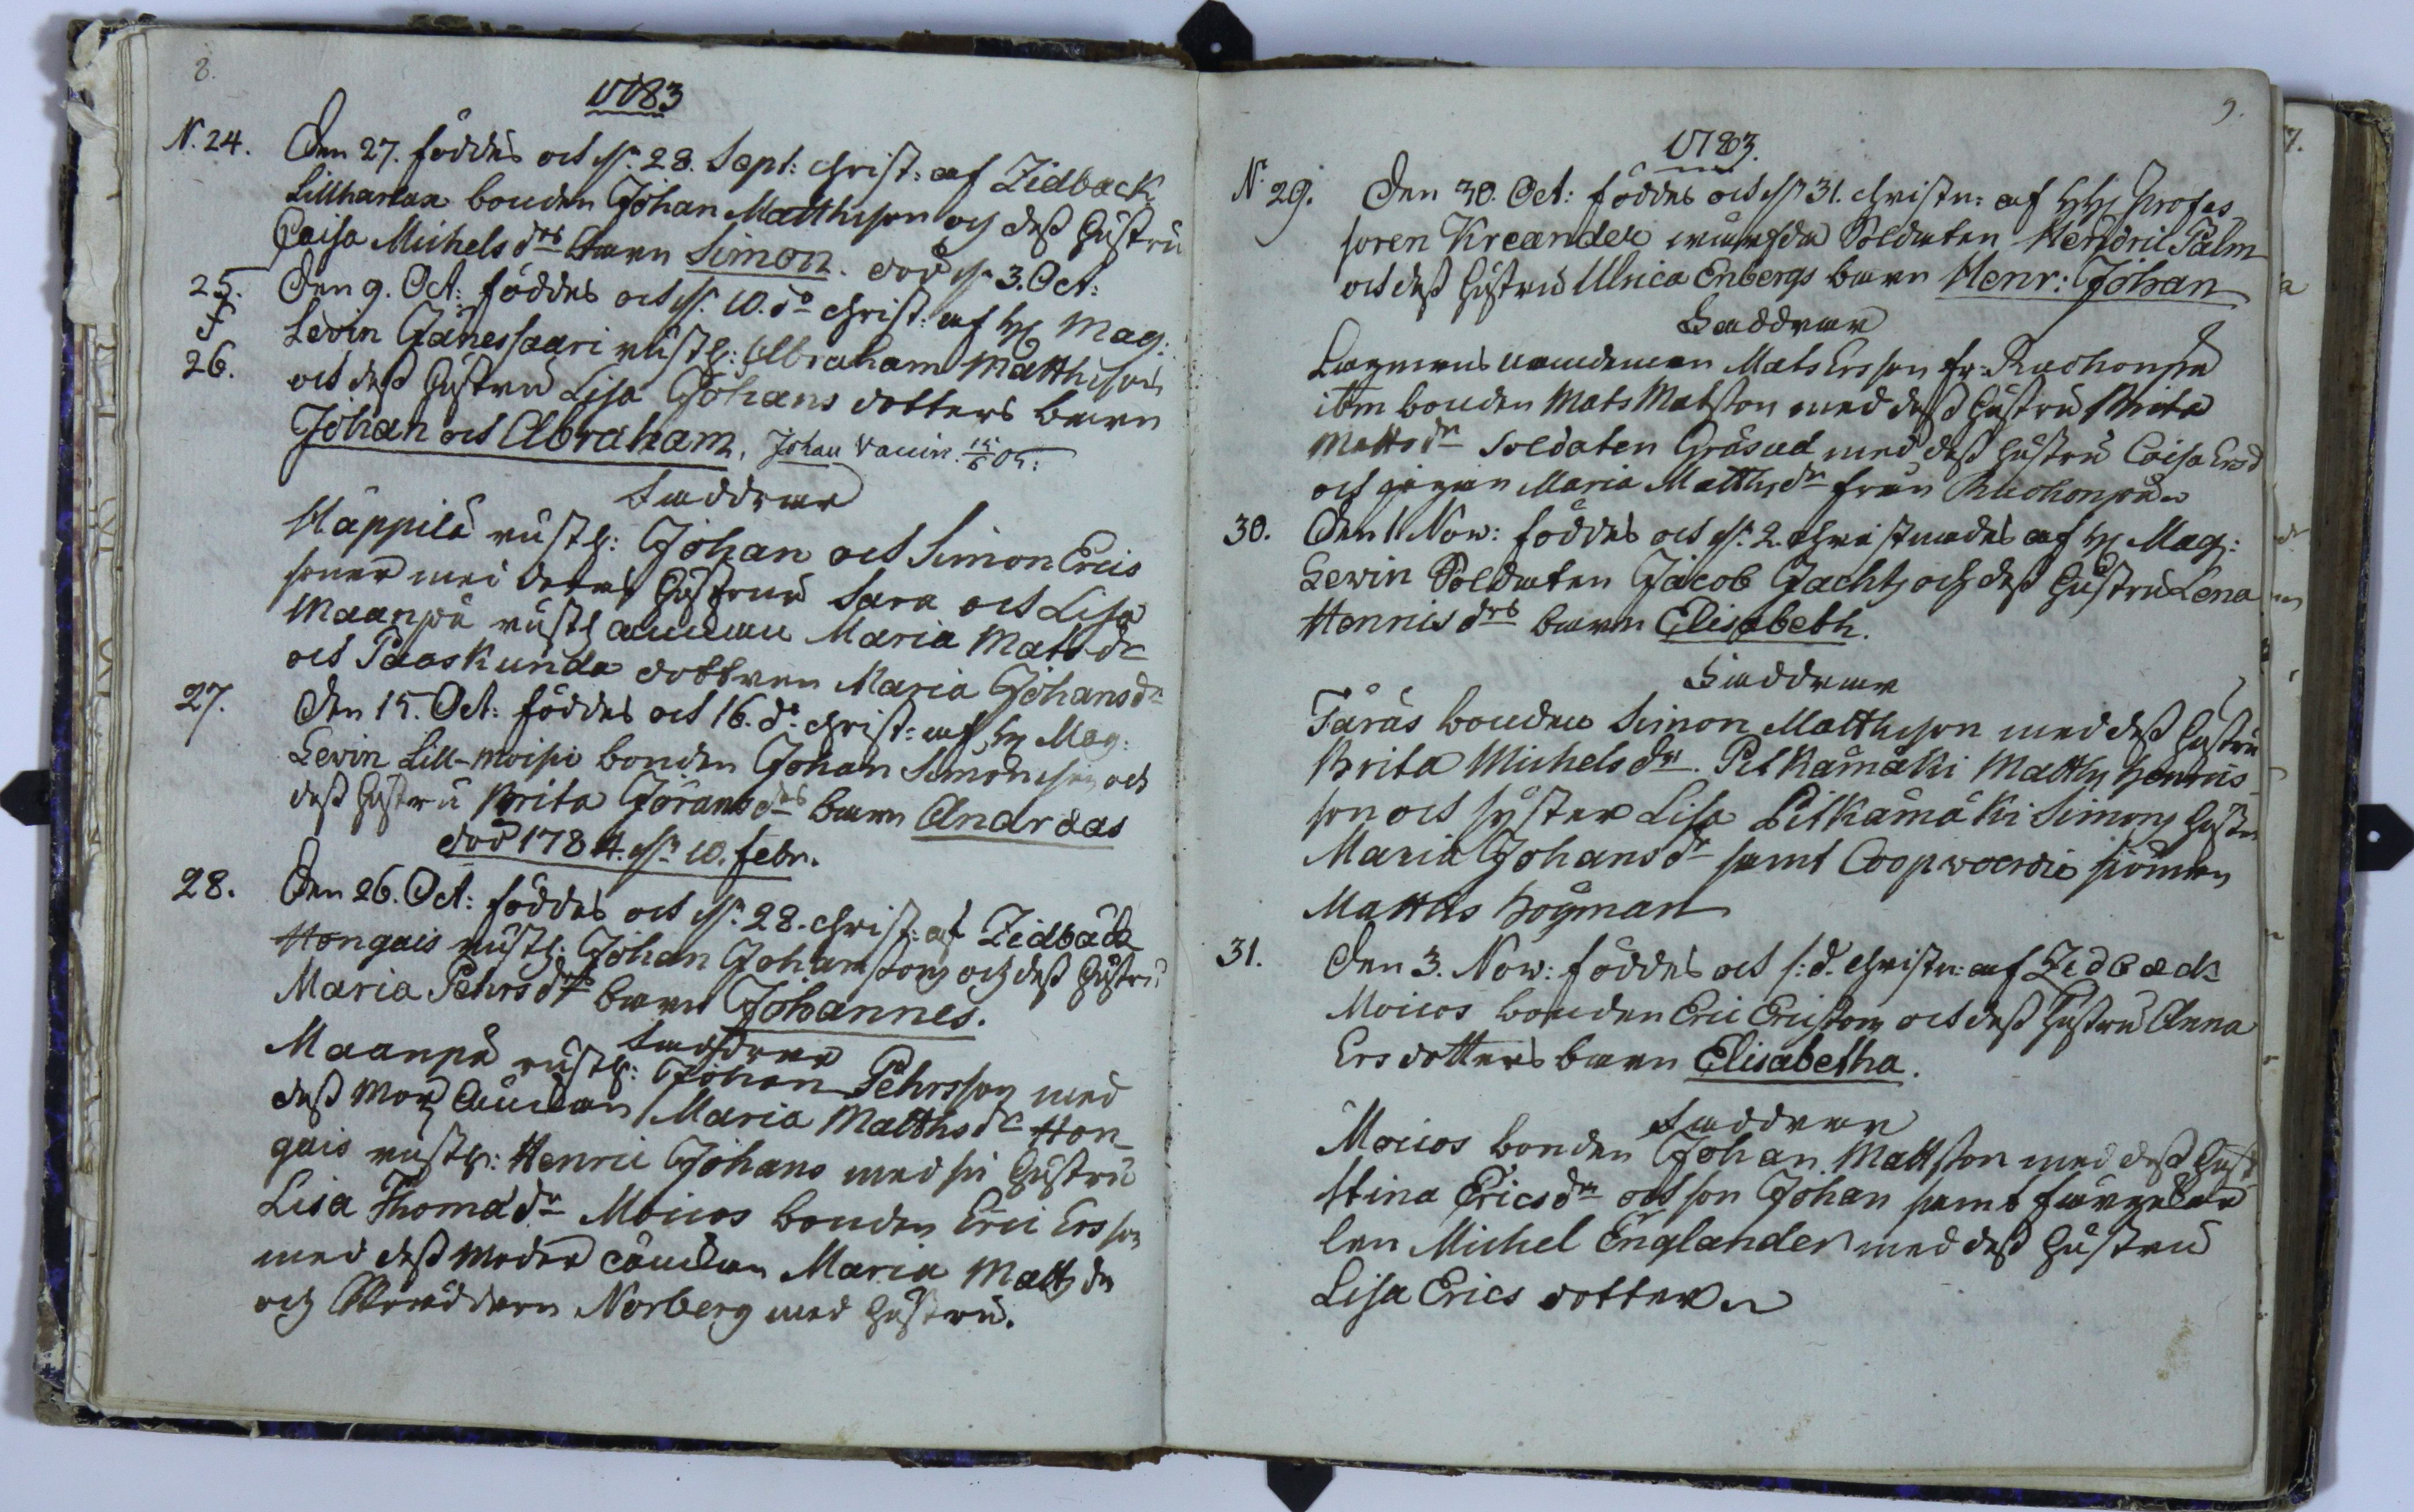 8.
1783
N. 24. Den 27. föddes och d. 28. Sept: christ: af Zidbäck
Lillharlax bonden Johan Matthisson och dess hustru
Caisa Michels drs barn Simon. död d. 3. Oct:
25. Den 9. Oct: föddes och d. 10. do christ: af H. Mag:
Levin Jänessaari rusth: Abraham Matthissons
26. och dess hustru Lisa Johans dotters barn
Johan och Abraham, Johan Vaccin. 15/6 05:
Faddrar
Häppilä rusth: Johan och Simon Erics
söner med deras hustrur Sara och Lisa
Maanpä rusth ännkan Maria Mats dr
och Paaskunda dottren Maria Johans dr
27. Den 15. Oct: föddes och 16. do christ: af H. Mag:
Levin Lill-Moisio bonden Johan Simonsson och
dess hustru Brita Jörans drs barn Andreas
död 1784. d. 10. febr.
28. Den 26. Oct: föddes och d. 28. christ: af Zidbäck
Hongais rusth: Johan Johansson och dess hustru
Maria Pehrs drs barn Johannes.
Faddrar
Maanpä rusth: Johan Pehrsson med
dess Mor Änckan Maria Matths dr Hon-
gais rusth: Henric Johans med sin hustru
Lisa Thomæ dr Moicos bonden Eric Ersson
med dess Moder änckan Maria Matts dr
och Skräddern Norberg med hustru.
9.
1783.
N. 29. Den 30. Oct: föddes och d. 31. christn: af H. Profes-
soren Kreander Soldaten Hendric Palm
och dess hustru Ulrica Enbergs barn Henr: Johan
Faddrar
Lagmans nämdeman Mats Ersson fr. Ruohonpä
item bonden Mats Matsson med dess hustru Brita
Matts dr Soldaten Gråsad med dess hustru Caisa Ersd
och pigan Maria Matths dr från Ruohonpä
30. Den 1 Nov: föddes och d. 2. christnades af H. Mag:
Levin Soldaten Jacob Jacht och dess hustru Lena
Hennis drs barn Elisabeth.
Faddrar
Taras bonden Simon Matthisson med dess hustru
Brita Michels dr. Pitkämäki Matths Henrics-
son och syster Lisa Pitkämäki Simons hustru
Maria Johans dr samt Coopvoerdie sjöman
Matths Högman
31. Den 3. Nov: föddes och s:d. christn: af Zidbäck
Moicos bonden Eric Ericsson och dess hustru Anna
Ersdotters barn Elisabetha.
Faddrar
Moicos bonden Johan Mattsson med dess hust.
Stina Erics dr och son Johan samt
Michel Englander med dess hustru
Lisa Erics dotter